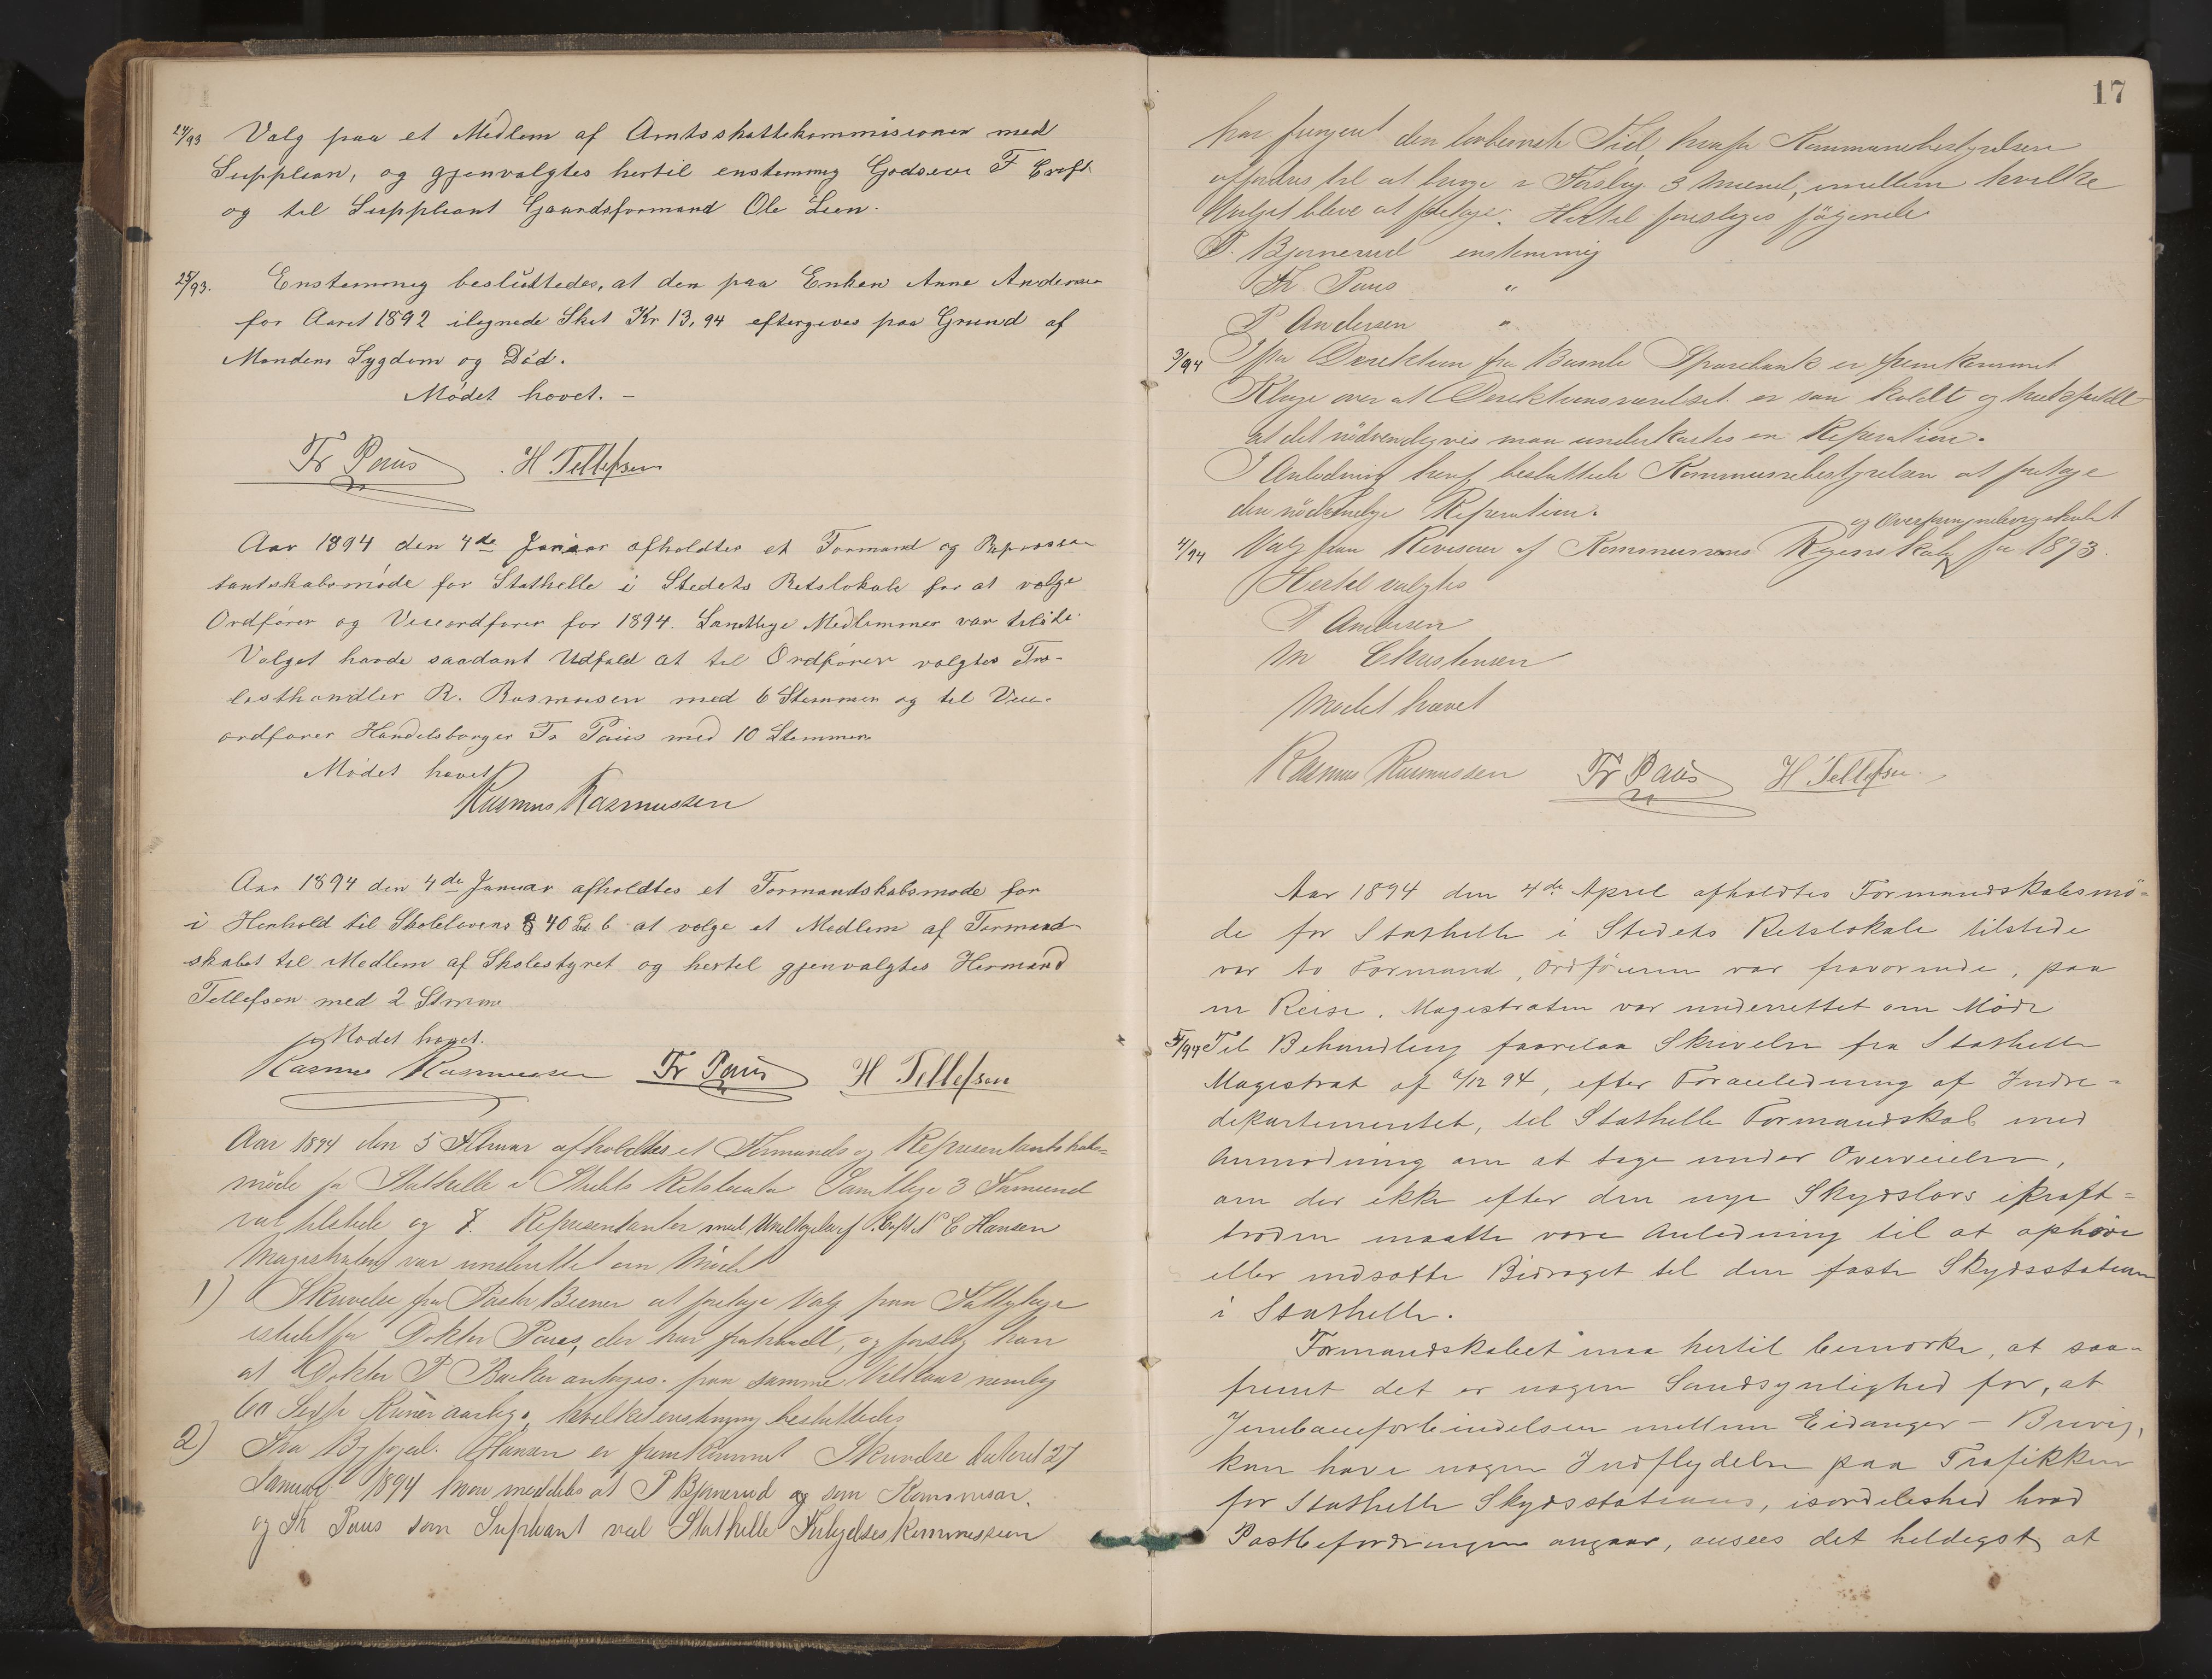 24/93 Valg paa et Medlem af Amtsskattekommisionen med
Supplean, og gjenvalgtes hertil enstemmig Godseier F Croft
og til Suppleant Gaardsformand Ole Lien.
25/93. Enstemmig besluttedes, at den paa Enken Anne Andersen
for Aaret 1892 ilignede Skat Kr 13,94 eftergives paa Grund af
Mandens Sygdom og Død.
Mødet hævet. -
Fr Paus H Tellefsen
Aar 1894 den 4de Januar afholdtes et Formand og Repræsen
tantskabsmøde for Stathelle i Stedets Retslokale for at vælge
Ordfører og Viceordfører for 1894. Samtlige Medlemmer var tilstede.
Valget havde saadant Udfald at til Ordfører valgtes Træ-
lasthandler R. Rasmussen med 6 Stemmer og til Vice-
ordfører Handelsborger Fr Paus med 10 Stemmer
Mødet hævet
Rasmus Rasmussen
Aar 1894 den 4de Januar afholdtes et Formandskabsmøde for
i Henhold til Skolelovens § 40 Lit b at vælge et Medlem af Formand
skabet til Medlem af Skolestyret og hertil gjenvalgtes Hermand
Tellefsen med 2 Stemme
Mødet hævet.
Rasmus Rasmussen Fr Paus H Tellefsen
Aar 1894 den 5 Februar afholdtes et Formands og Repræsentantskabs=
møde for Stathelle i Stedets Retslocale Samtlige 3 Formænd
var tilstede og 7. Repræsentanter med Undtagelse af C E Hansen
Magistraten var underrettet om Mødet
1) Skrivelse fra Pastor at foretage Valg paa Fattiglæge
istedetfor Doktor Paus, der har frasagt, og foreslog han
at Doktor P Backer antages paa samme Vilkaar nemlig
60 Sexti Kroner aarlig, hvilket enstemmig besluttedes
2) Fra Byfoged Hansen er fremkommet Skrivelse dateret 27
Januar 1894 hvori meddeles at P Bjørnerud og som Kommissær
og Fr Paus som Supleant ved Stathelle Forligelseskommission
17
har fungert den lovbestemte Tid, hvorfor Kommunebestyrelsen
opfordres til at bringe i Forslag 3 Mænd, imellem hvilke
Valget bliver at foretage. Hertil foresloges følgende
P. Bjørnerud enstemmig
Fr Paus "
P Andersen "
3/94 Ifra Direktion for Bamble Sparebank er fremkommet
Klage over at Direktionsværelset er saa koldt og
at det nødvendigvis maa underkastes en Reparation.
I Anledning heraf besluttede Kommunebestyrelsen at foretage
den nødvendige Reparation.
og Overformynderregnskabet
4/94 Valg paa Revisorer af Kommunens Regnskab for 1893.
Hertil valgtes
P Andersen
M Christensen
Mødet hævet
Rasmus Rasmussen Fr Paus H Tellefsen
Aar 1894 den 4de April afholdtes Formandskabsmø=
de for Stathelle i Stedets Retslokale tilstede
var to Formænd, Ordføreren var fraværende, paa
en Reise. Magistraten var underrettet om Møde
5/94 Til Behandling forelaa Skrivelse fra Stathelle
Magistrat af 94, efter Foranledning af Indre=
departementet, til Stathelle Formandskab med
Anmodning om at tage under Overveielse,
om der ikke efter den nye Skydslovs ikraft=
træden maatte være Anledning til at ophøre
eller nedsætte Bidraget til den faste Skydsstation
i Stathelle.
Formandskabet maa hertil bemærke, at saa-
fremt det er nogen Sandsynlighed for, at
Jernbaneforbindelsen mellem Eidanger - Brevig,
kan have nogen Indflydelse paa Trafikken
for Stathelle Skydsstations, isærdeleshed hvad
Postbefordringen angaar, ansees det heldigst at